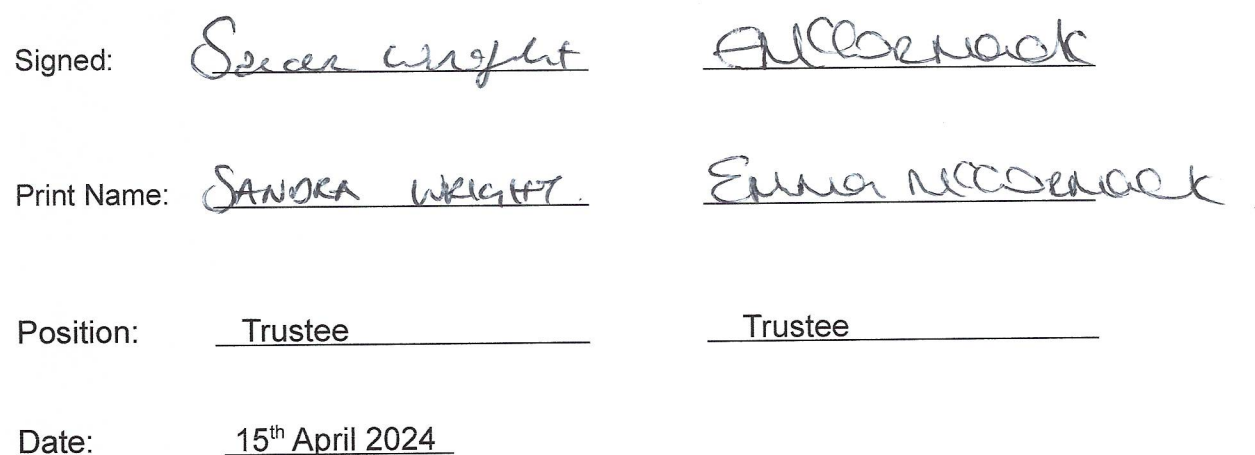 Signed: Wright EMcCormack
Print Name: SANDRA WRIGHT. Emma McCormack
Position: Trustee Trustee
Date: 15th April 2024